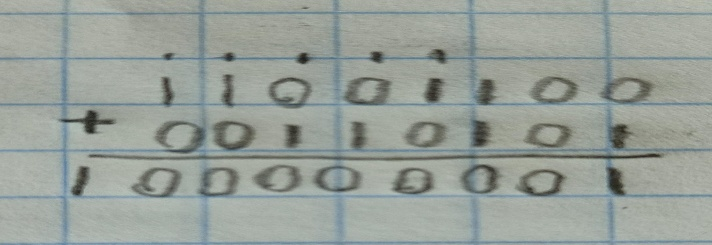 . . . . .
1 1 0 0 1 1 0 0
+ 0 0 1 1 0 1 0 1
1 0 0 0 0 0 0 0 1